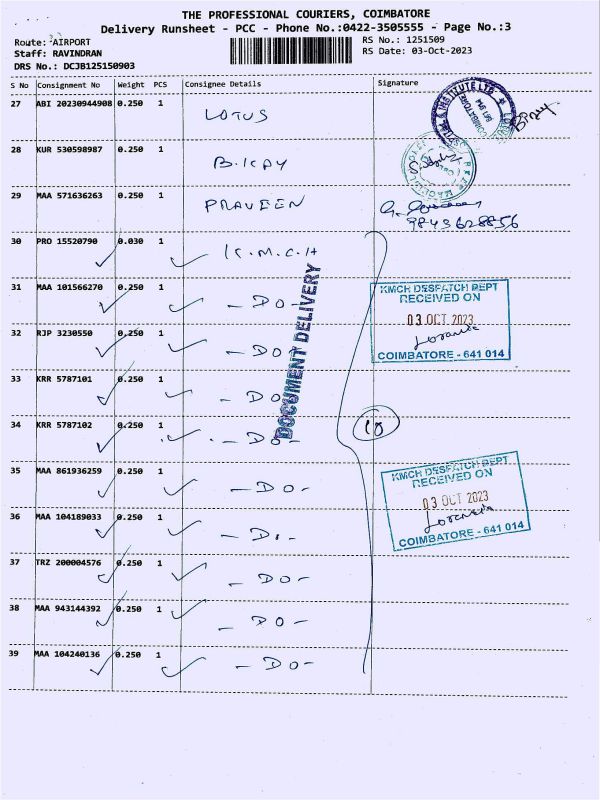 THE PROFESSIONAL COURIERS, COIMBATORE
Delivery Runsheet - PCC - Phone No.:0422-3505555 - Page No.:3
Route: AIRPORT
RS No.: 1251509
Staff: RAVINDRAN
RS Date: 03-Oct-2023
DRS No.: DCJB125150903
S No Consignment No Weight PCS Consignee Details Signature
27 ABI 20230944908 0.250 1 LOTUS
28 KUR 530598987 0.250 1 B.KAY
29 MAA 571636263 0.250 1 PRAVEEN
9843628856
30 PRO 15520790 0.030 1 K.M.C.H
31 MAA 101566270 0.250 1 - DO -
KMCH DESPATCH DEPT
RECEIVED ON
03 OCT 2023
COIMBATORE - 641 014
DOCUMENT DELIVERY
32 RJP 3230550 0.250 1 - DO -
33 KRR 5787101 0.250 1 - DO -
34 KRR 5787102 0.250 1 - DO -
35 MAA 861936259 0.250 1 - DO -
KMCH DESPATCH DEPT
RECEIVED ON
03 OCT 2023
COIMBATORE - 641 014
36 MAA 104189033 0.250 1 - Do -
37 TRZ 200004576 0.250 1 - DO -
38 MAA 943144392 0.250 1 - DO -
39 MAA 104240136 0.250 1 - DO -